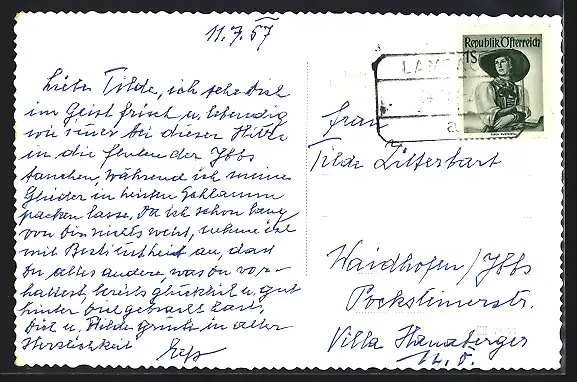 11.7.57
Liebe Tilde, ich sehe Dich
im Geist frisch u. lebendig
wie immer bei dieser Hitze
in die Fluten der Ybbs
tauchen, während ich meine
Glieder in heißen Schlamm
packen lasse. Da ich schon lang
von Dir nichts weiß, nehme ich
mit Bestimmtheit an, dass
Du alles andere, was Du vor-
hattest, bereits glücklich u. gut
hinter Dich gebracht hast.
Dich u. Hilde grüßt in aller
Herzlichkeit
Republik Österreich
1S
a
Frau
Tilde Zitterbart
Waidhofen/Ybbs
Pocksteinerstr.
Villa
N.Ö.